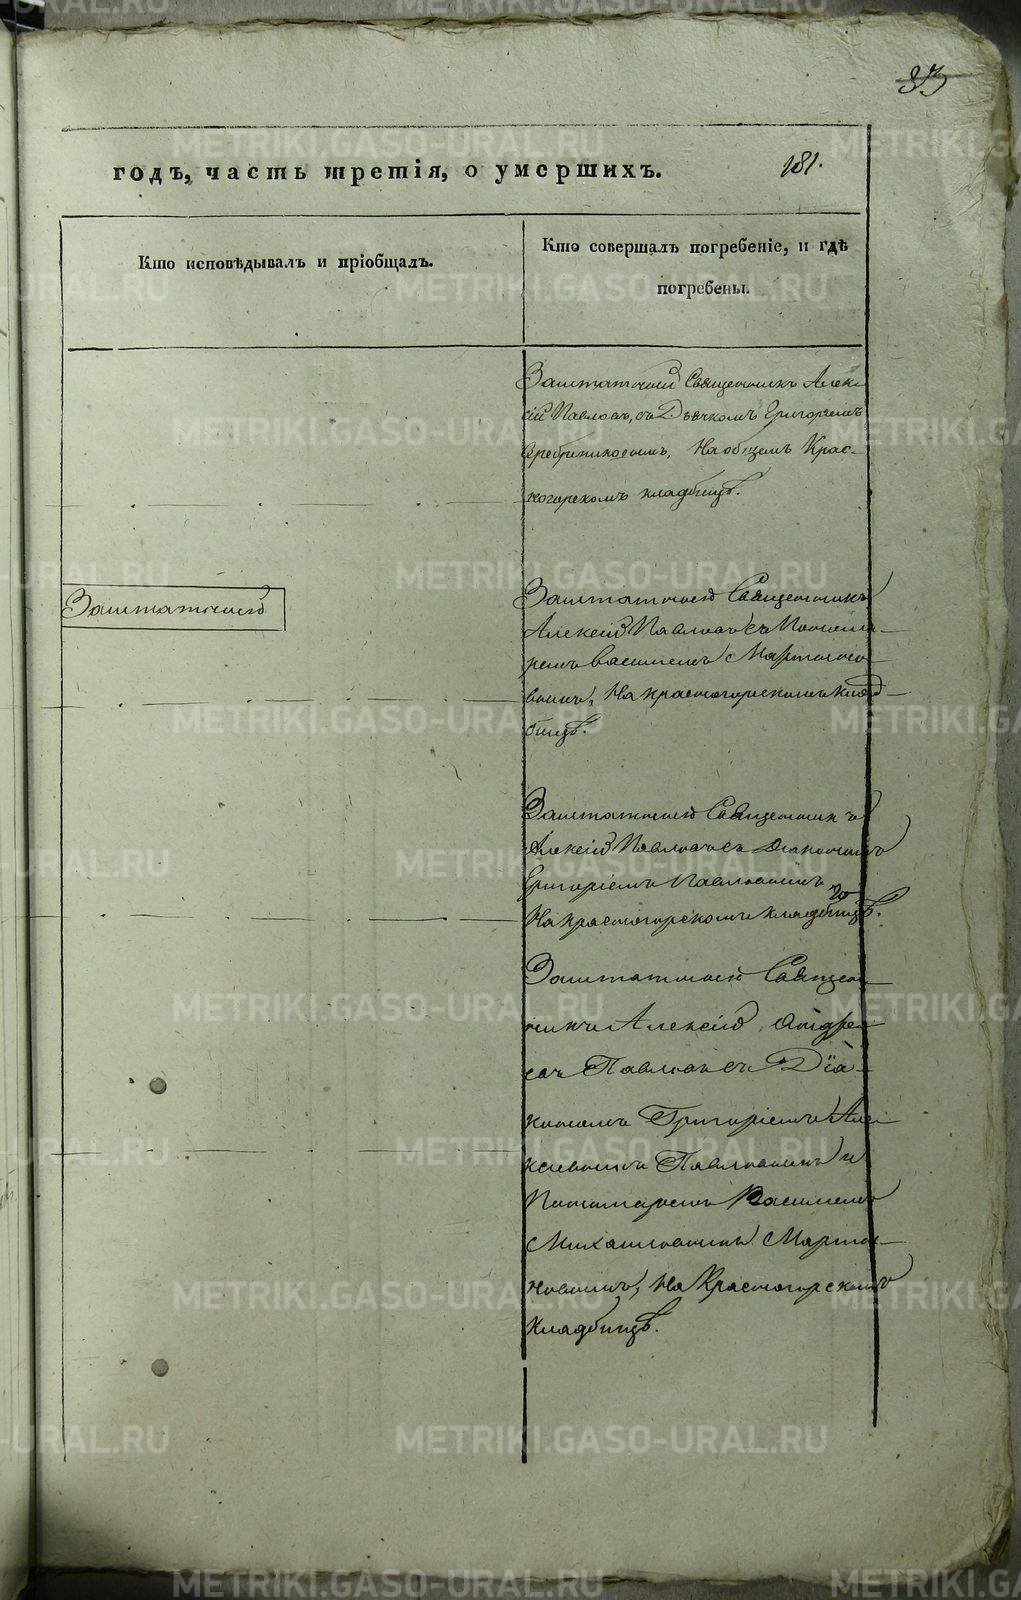 33
181.
годъ, часть третія, о умершихъ.
Кто исповѣдывалъ и пріобщалъ.
Кто совершалъ погребеніе, и гдѣ
погребены.
Заштатный Священникъ Алек-
сій Павловъ, съ Дьячкомъ Григоріемъ
На общемъ Крас-
ногорскомъ кладбищѣ.
Заштатный
Заштатный Священникъ
Алексій Павловъ съ Понома-
ремъ Василіемъ Мартыно-
вымъ, На красногорскомъ клад-
бищѣ.
Заштатный Священникъ
Алексій Павловъ съ Діакономъ
Григоріемъ Павловымъ
На красногорскомъ кладбищѣ.
Заштатный Священ-
никъ Алексій Андре-
евъ Павловъ съ Діа-
кономъ Григоріемъ Але-
ксѣевымъ Павловымъ и
Пономаремъ Василіемъ
Михайловымъ Марты-
новымъ, На Красногорскомъ
кладбищѣ.
METRIKI.GASO-URAL.RU